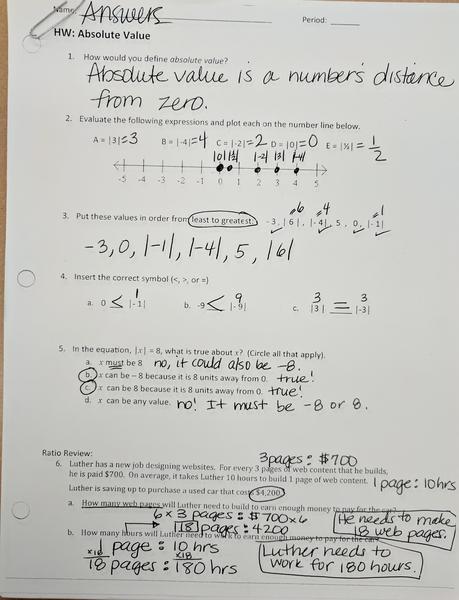 Name: Answers Period:
HW: Absolute Value
1. How would you define absolute value?
Absolute value is a number's distance
from zero.
2. Evaluate the following expressions and plot each on the number line below.
A = |3|=3 B = |-4|=4 C = |-2|=2 D = |0|=0 E = |½| = 1/2
|0| |½| |-2| |3| |-4|
-5 -4 -3 -2 -1 0 1 2 3 4 5
=6 =4 =1
3. Put these values in order from least to greatest: -3, |6|, |-4|, 5, 0, |-1|
-3, 0, |-1|, |-4|, 5, |6|
4. Insert the correct symbol (<, >, or =)
1 9 3 3
a. 0 < |-1| b. -9 < |-9| c. |3| = |-3|
5. In the equation, |x| = 8, what is true about x? (Circle all that apply).
a. x must be 8 no, it could also be -8.
b. x can be -8 because it is 8 units away from 0. true!
c. x can be 8 because it is 8 units away from 0. true!
d. x can be any value. no! It must be -8 or 8.
Ratio Review:
3 pages : $700
6. Luther has a new job designing websites. For every 3 pages of web content that he builds,
he is paid $700. On average, it takes Luther 10 hours to build 1 page of web content. 1 page : 10 hrs
Luther is saving up to purchase a used car that costs $4,200.
a. How many web pages will Luther need to build to earn enough money to pay for the car?
6 x 3 pages : $700 x 6
18 pages : 4200
He needs to make
18 web pages.
b. How many hours will Luther need to work to earn enough money to pay for the car?
x18 1 page : 10 hrs x18
18 pages : 180 hrs
Luther needs to
work for 180 hours.